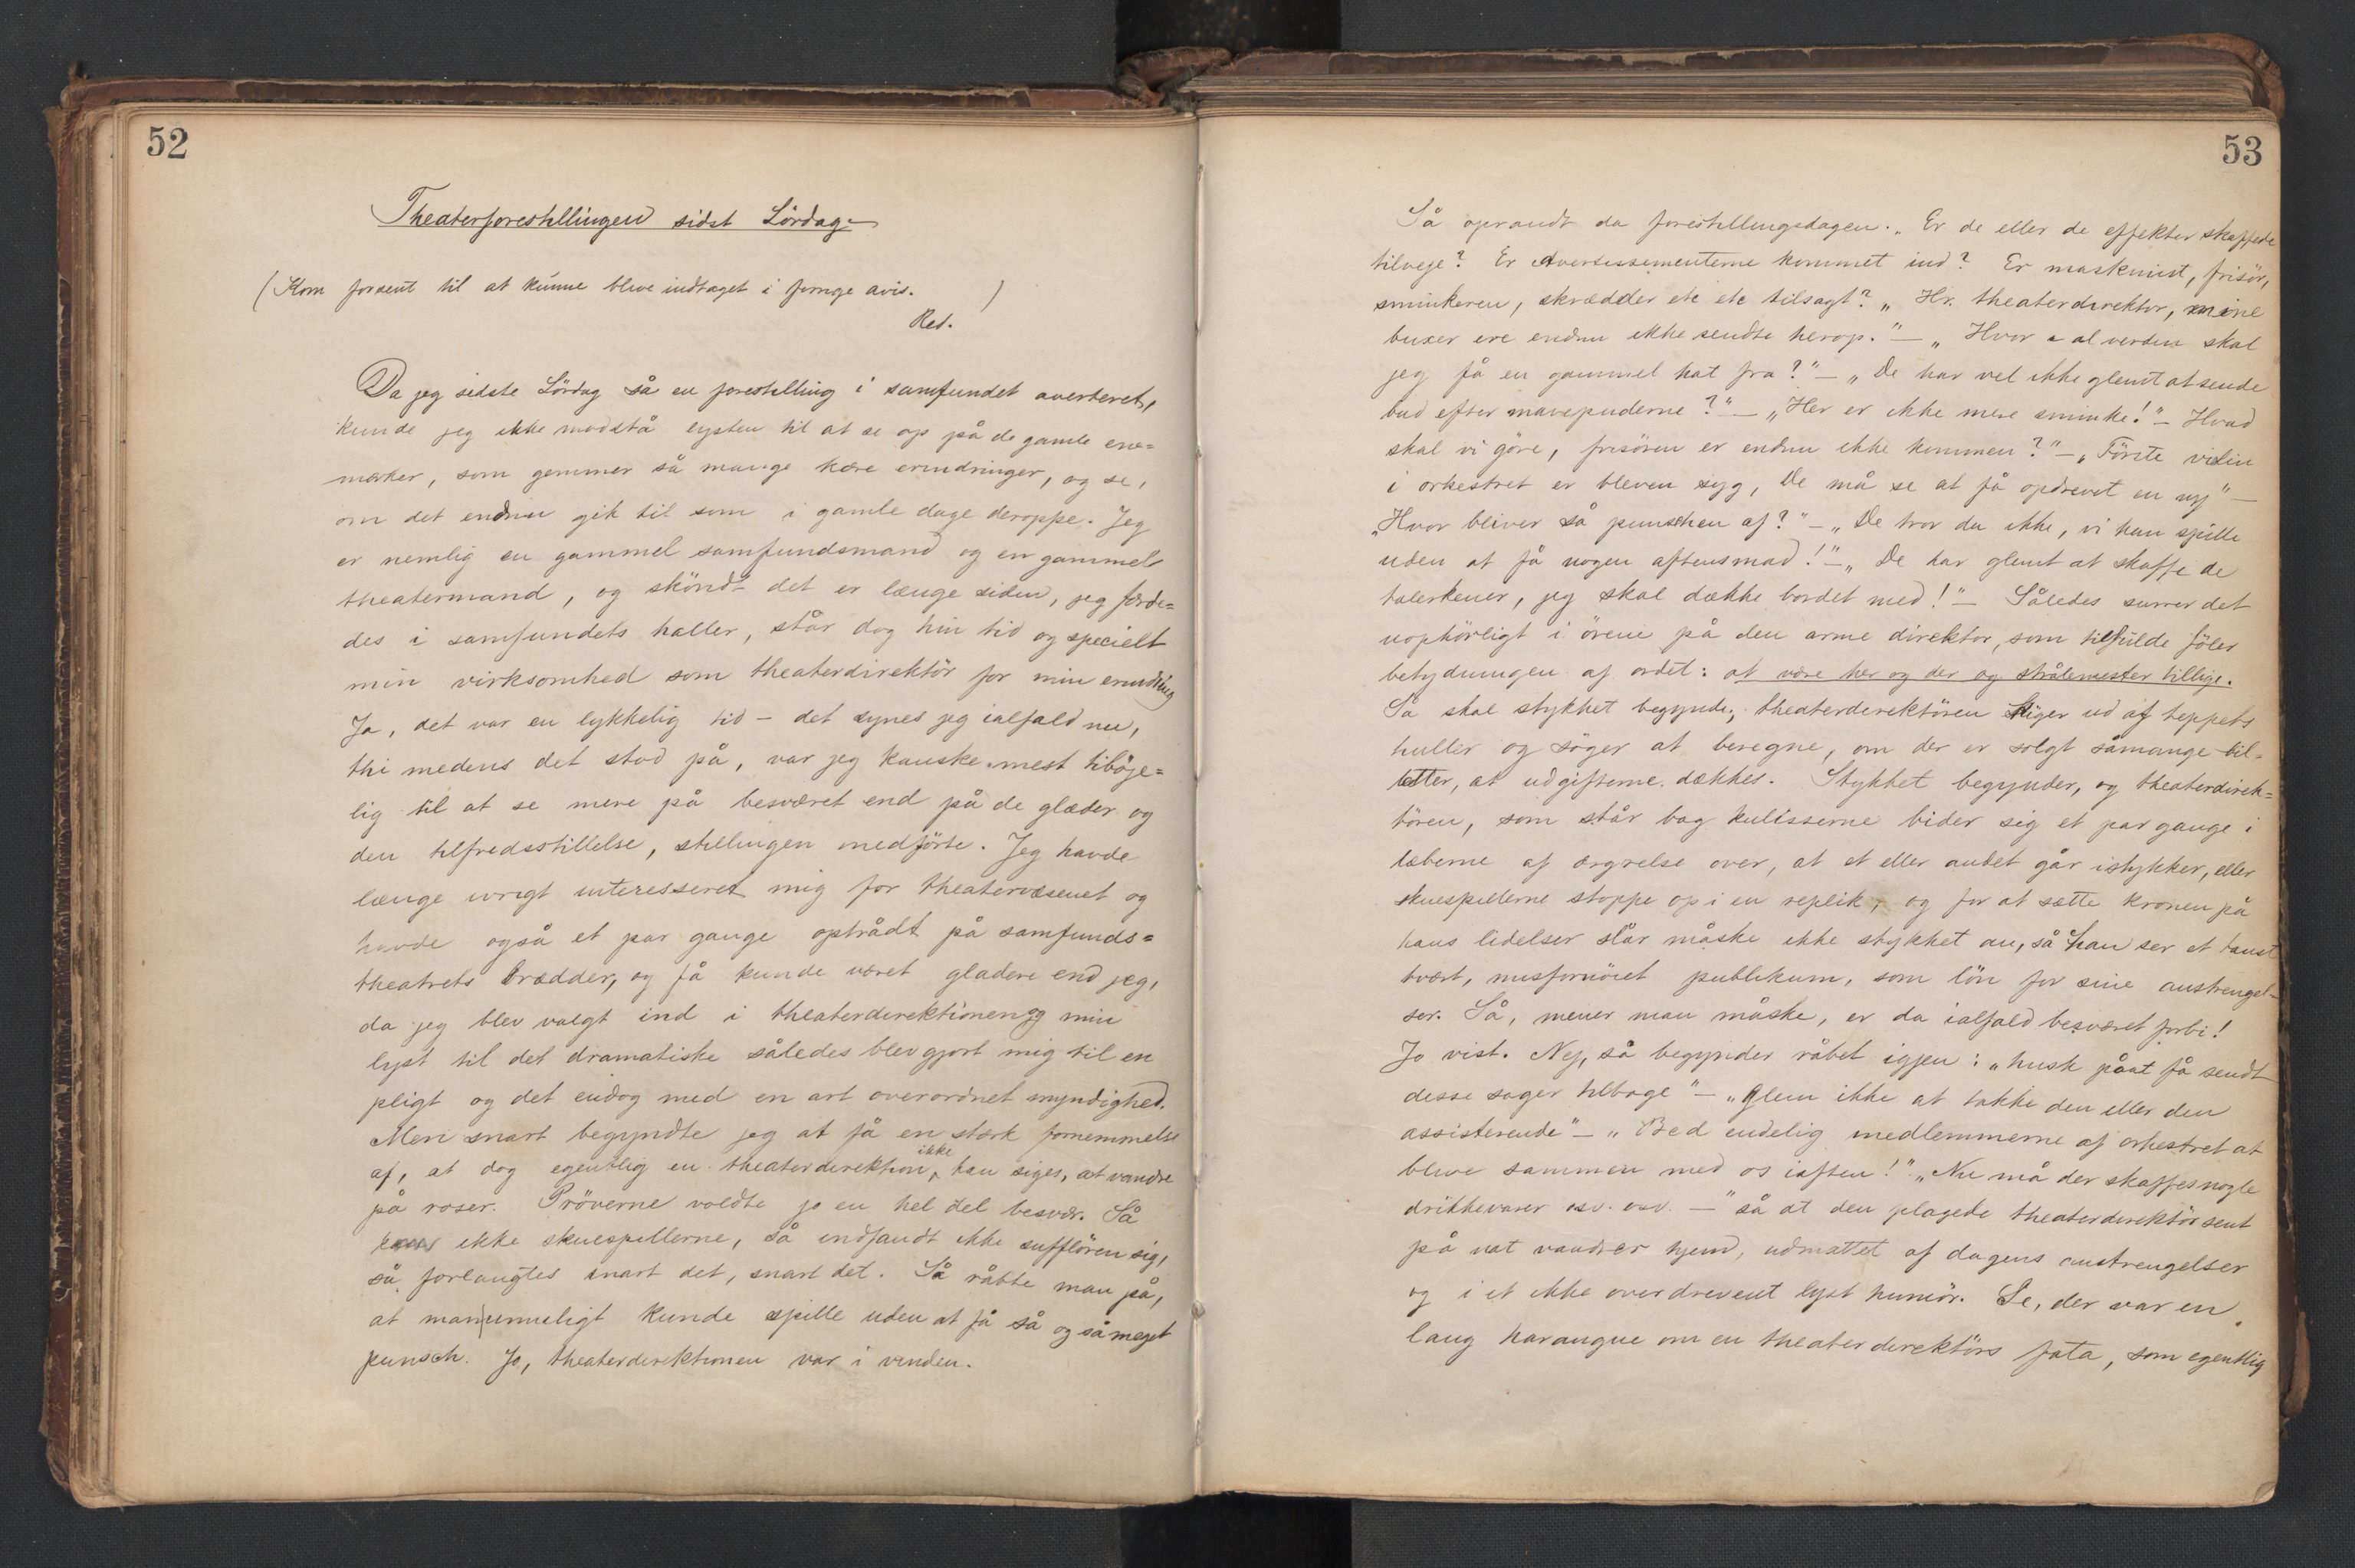 52
Theaterforestillingen sidst Lördag
(Kom forsent til at kunne blive indtaget i forrige avis.)
Red.
Da jeg sidste Lördag så en forestilling i samfundet averteret,
kunde jeg ikke modstå lysten til at se op på de gamle ene=
mærker, som gemmer så mange kære erindringer, og se,
om det endnu gik til som i gamle dage deroppe. Jeg
er nemlig en gammel samfundsmand og en gammel
theatermand, og skjöndt det er længe siden, jeg færde=
des i samfundets haller, står dog hin tid og specielt
min virksomhed som theaterdirektör for min erindring
Ja, det var en lykkelig tid – det synes jeg ialfald nu,
thi medens det stod på, var jeg kanske mest tiböje=
lig til at se mere på besværet end på de glæder og
den tilfredsstillelse, stillingen medförte. Jeg havde
længe ivrigt interesseret mig for theatervæsenet og
havde også et par gange optrådt på samfunds=
theatrets brædder, og få kunde været gladere end jeg,
da jeg blev valgt ind i theaterdirektionen og min
lyst til det dramatiske således blev gjort mig til en
pligt og det endog med en art overordnet myndighed.
Men snart begyndte jeg at få en stærk fornemmelse
af, at dog egentlig en theaterdirektion ikke kan siges, at vandre
på roser. Pröverne voldte jo en hel del besvær. Så
kom ikke skuespillerne, så indfandt ikke sufflören sig,
så forlangtes snart det, snart det. Så råbte man på,
at man umuligt kunde spille uden at få så og såmeget
punsch. Jo, theaterdirektionen var i vinden.
53
Så oprandt da forestillingsdagen. „Er de eller de effekter skaffede
tilveje? Er Avertissementerne kommet ind? Er maskinist, frisör,
sminkeren, skrædder etc etc tilsagt? „Hr. theaterdirektor, mine
buxer ere endnu ikke sendte herop." – „Hvor i al verden skal
jeg få en gammel hat fra?" – „De har vel ikke glemt at sende
bud efter mavepuderne?" – „Her er ikke mere sminke!" – Hvad
skal vi göre, frisören er endnu ikke kommen?" – „Förste violin
i orkestret er bleven syg, De må se at få opdrevet en ny" –
„Hvor bliver så punschen af?" – „De tror da ikke, vi kan spille
uden at få nogen aftensmad!" – „De har glemt at skaffe de
talerkener, jeg skal dække bordet med!" – Således surrer det
uophörligt i örene på den arme direktor, som tilfulde föler
betydningen af ordet: at være her og der og strålemester tillige.
Så skal stykket begynde; theaterdirektören kiger ud af teppets
huller og söger at beregne, om der er solgt såmange bil=
letter, at udgifterne dækkes. Stykket begynder, og theaterdirek=
tören, som står bag kulisserne bider sig et par gange i
læberne af ærgrelse over, at et eller andet går istykker, eller
skuespillerne stoppe op i en replik, og for at sætte kronen på
hans lidelser slår måske ikke stykket an, så han ser et taust
tvært, misfornöiet publikum, som lön for sine anstrengel=
ser. Så, mener man måske, er da ialfald besværet forbi!
Jo vist. Nej, så begynder råbet igjen: „husk påat få sendt
desse sager tilbage" – „Glem ikke at takke den eller den
assisterende" – „Bed endelig medlemmerne af orkestret at
blive sammen med os iaften!" „Nu må der skaffes nogle
drikkevarer osv. osv. –" så at den plagede theaterdirektör sent
på nat vandrer hjem, udmattet af dagens anstrengelser
og i et ikke overdrevent lyst humör. Se, der var en
lang harangue om en theaterdirektörs fata, som egentlig